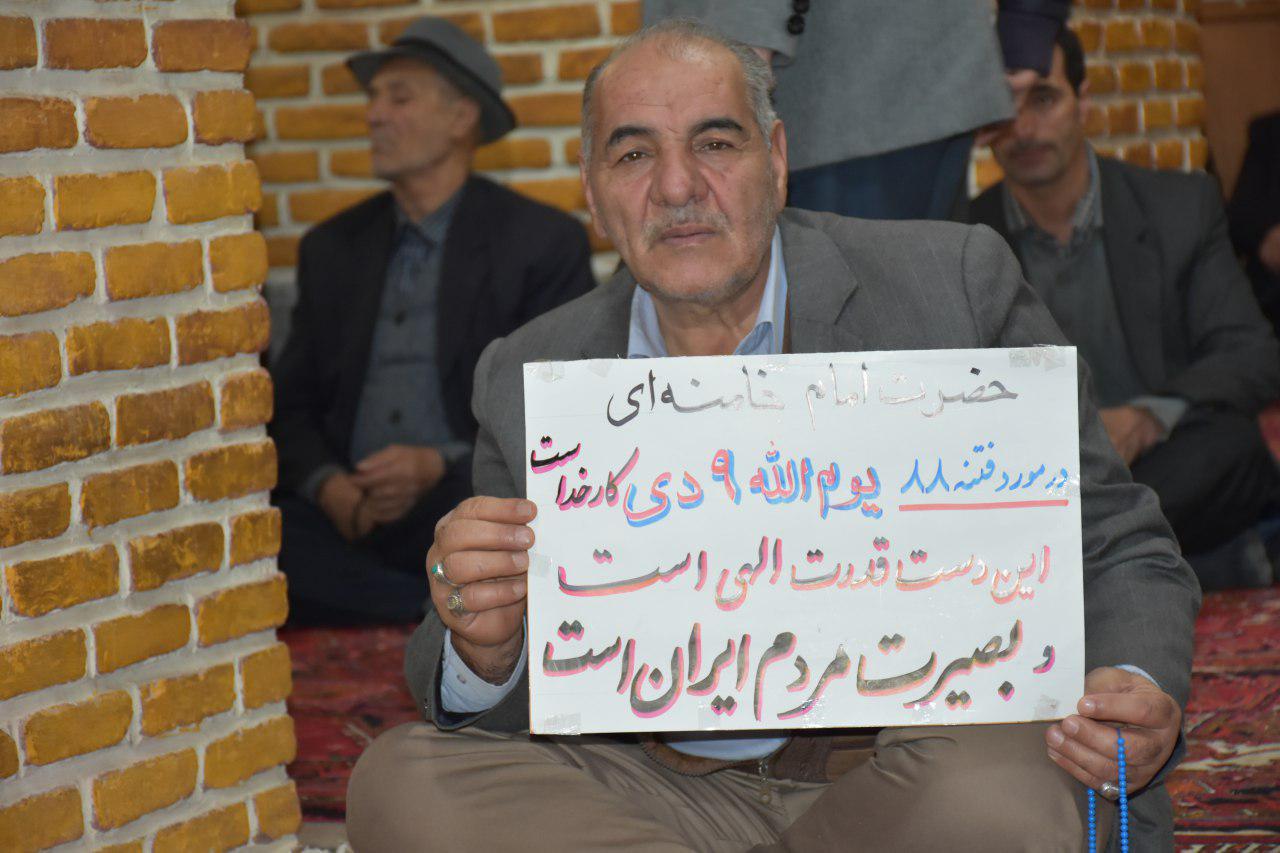 حضرت امام خامنه‌ای
در مورد فتنه ۸۸ یوم الله ۹ دی کار خداست
این دست قدرت الهی است
و بصیرت مردم ایران است